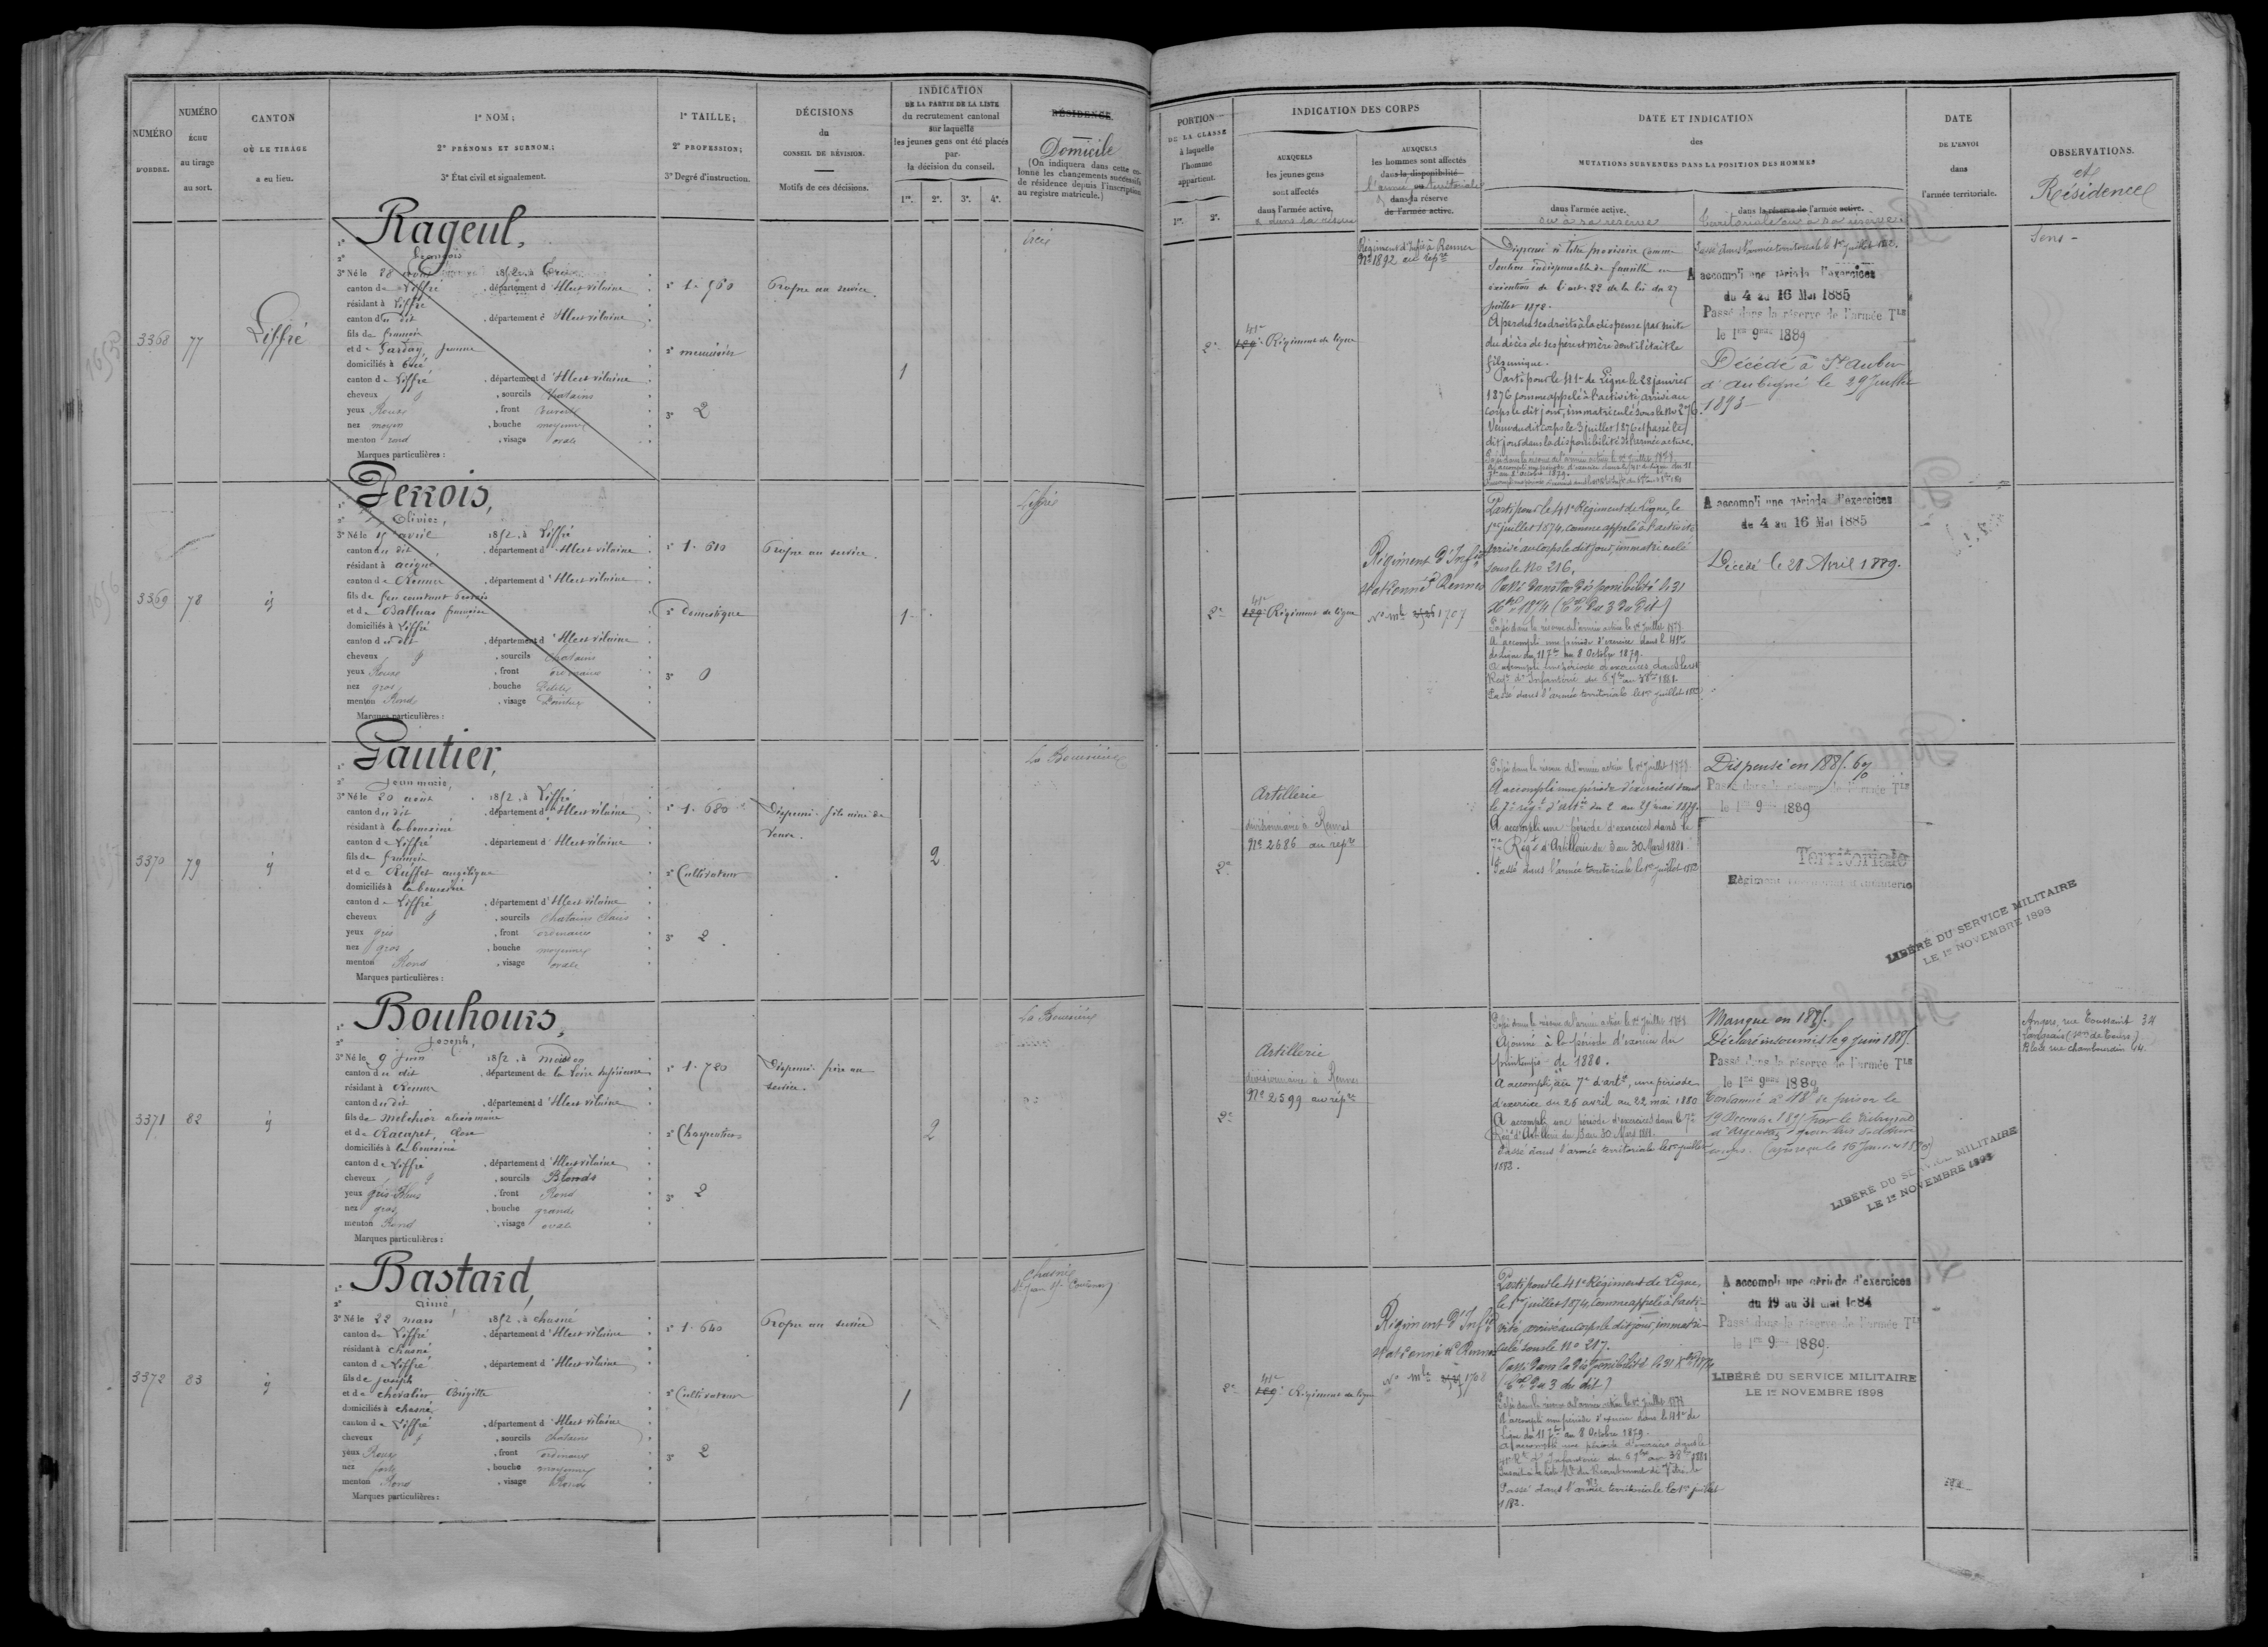 NUMÉRO
D'ORDRE.
NUMÉRO
ÉCHU
au tirage
au sort.
CANTON
OÙ LE TIRAGE
a eu lieu.
1° NOM;
2° PRÉNOMS ET SURNOM;
3° État civil et signalement.
1° TAILLE;
2° PROFESSION;
3° Degré d'instruction.
DÉCISIONS
du
CONSEIL DE RÉVISION.
Motifs de ces décisions.
INDICATION
DE LA PARTIE DE LA LISTE
du recrutement cantonal
sur laquelle
les jeunes gens ont été placés
par
la décision du conseil.
1re. 2e. 3e. 4e.
RÉSIDENCE.
Domicile
(On indiquera dans cette co-
lonne les changements successifs
de résidence depuis l'inscription
au registre matricule.)
3368
77
Liffré
Rageul,
François
3° Né le 28 1852, à
canton de Liffré, département d'Ille et vilaine
résidant à Liffré
canton du dit, département d'Ille et vilaine
fils de françois
et de Jeanne
domiciliés à
canton de Liffré, département d'Ille et vilaine
cheveux, sourcils Chatains
yeux Roux, front
nez moyen, bouche moyenne
menton rond, visage ovale
Marques particulières :
1° 1. 560
2° menuisier
3° 2
Propre au service.
1
3369
78
id
Perrois,
Olivier,
3° Né le 15 avril 1852, à Liffré
canton du dit, département d'Ille et vilaine
résidant à acigné
canton de Rennes, département d'Ille et vilaine
fils de feu constant Perrois
et de Balluas françoise
domiciliés à Liffré
canton du dit, département d'Ille et vilaine
cheveux, sourcils chatains
yeux Roux, front ordinaire
nez gros, bouche Petite
menton Rond, visage Pointu
Marques particulières :
1° 1. 610
2° Domestique
3° 0
Propre au service.
1
Liffré
3370
79
id
Gautier,
Jean marie,
3° Né le 20 août 1852, à Liffré
canton du dit, département d'Ille et vilaine
résidant à la bouexière
canton de Liffré, département d'Ille et vilaine
fils de françois
et de Ruffet angélique
domiciliés à la bouexière
canton de Liffré, département d'Ille et vilaine
cheveux, sourcils Chatains clairs
yeux gris, front ordinaire
nez gros, bouche moyenne
menton Rond, visage ovale
Marques particulières :
1° 1. 680
2° Cultivateur
3° 2
Dispensé. fils ainé de
veuve.
2
La Bouexière
3371
82
id
Bouhours,
Joseph,
3° Né le 9 Juin 1852, à
canton du dit, département de la Loire Inférieure
résidant à Rennes
canton du dit, département d'Ille et vilaine
fils de Melchior alexis marie
et de Racapet,
domiciliés à la bouexière
canton de Liffré, département d'Ille et vilaine
cheveux, sourcils Blonds
yeux gris Bleus, front Rond
nez gros, bouche grande
menton Rond, visage ovale
Marques particulières :
1° 1. 780
2° Charpentier
3° 2
Dispensé. frère au
service.
2
La Bouexière
3372
83
id
Bastard,
aimé,
3° Né le 22 mars 1852, à chasné
canton de Liffré, département d'Ille et vilaine
résidant à chasné
canton de Liffré, département d'Ille et vilaine
fils de Joseph
et de chevalier Brigitte
domiciliés à chasné
canton de Liffré, département d'Ille et vilaine
cheveux, sourcils chatains
yeux Roux, front ordinaire
nez fort, bouche moyenne
menton Rond, visage Rond
Marques particulières :
1° 1. 640
2° Cultivateur
3° 2
Propre au service
1
Chasné
PORTION
DE LA CLASSE
à laquelle
l'homme
appartient.
1re. 2e.
INDICATION DES CORPS
AUXQUELS
les jeunes gens
sont affectés
dans l'armée active.
AUXQUELS
les hommes sont affectés
dans la disponibilité
ou
l'armée territoriale
dans la réserve
de l'armée active.
DATE ET INDICATION
des
MUTATIONS SURVENUES DANS LA POSITION DES HOMMES
dans l'armée active.
ou à sa réserve
dans la réserve de l'armée active.
territoriale ou à sa réserve.
DATE
DE L'ENVOI
dans
l'armée territoriale.
OBSERVATIONS.
et
Résidences
2e
41e
129e Régiment de ligne
Régiment d'Infie à Rennes
No 1892 au répre
Dispensé à titre provisoire comme
soutien indispensable de famille en
exécution de l'art. 22 de la loi du 27
juillet 1872.
A perdu ses droits à la dispense par suite
du décès de ses père et mère dont il était le
fils unique.
Parti pour le 41e de Ligne le 28 janvier
1876 comme appelé à l'activité, arrivé au
corps le dit jour, immatriculé sous le No 276.
Venu du dit corps le 3 juillet 1876 et passé le
dit jour dans la disponibilité de l'armée active.
Passé dans la réserve de l'armée active le 1er Juillet 1878.
Passé dans l'armée territoriale le 1er juillet 1882.
A accompli une période d'exercices
du 4 au 16 Mai 1885
Passé dans la réserve de l'armée Tle
le 1er 9bre 1889
Décédé à St Aubin
d'Aubigné le 29 Juillet
1893
Sens -
2e
41e
129e Régiment de ligne
Régiment d'Infie
stationné à Rennes
No mle 1707
Parti pour le 41e Régiment de Ligne, le
1er juillet 1874, comme appelé à l'activité
arrivé au corps le dit jour, immatriculé
sous le No 216.
Passé dans la disponibilité le 31
Xbre 1874 (Cre du 3 du dit)
Passé dans la réserve de l'armée active le 1er Juillet 1878
A accompli une période d'exercice dans le 41e
de Ligne du 11 7bre au 8 Octobre 1879.
A accompli une période d'exercices dans le 41e
Régt d'Infanterie du 6 7bre au 3 8bre 1881.
Passé dans l'armée territoriale le 1er juillet 1882
A accompli une période d'exercices
du 4 au 16 Mai 1885
Décédé le 28 Avril 1889.
2e
Artillerie
divisionnaire à Rennes
No 2686 au répre
Passé dans la réserve de l'armée active le 1er Juillet 1878
A accompli une période d'exercices dans
le 7e régt d'artie du 2 au 29 mai 1879.
A accompli une période d'exercices dans le
7e Régt d'Artillerie du 3 au 30 Mars 1881
Passé dans l'armée territoriale le 1er juillet 1882
Dispensé en 1885.
Passé dans la réserve de l'armée Tle
le 1er 9 1889
Territoriale
LIBÉRÉ DU SERVICE MILITAIRE
LE 1er NOVEMBRE 1898
2e
Artillerie
divisionnaire à Rennes
No 2599 au répre
Passé dans la réserve de l'armée active le 1er Juillet 1878
Ajourné à la période d'exercice du
printemps de 1880.
A accompli, au 7e d'artie, une période
d'exercice du 26 avril au 22 mai 1880
A accompli une période d'exercices dans le 7e
Régt d'Artillerie du 3 au 30 Mars 1881.
Passé dans l'armée territoriale le 1er juillet
1882.
Manque en 1885.
Déclaré insoumis le 9 juin 1885.
Passé dans la réserve de l'armée Tle
le 1er 9bre 1889
LIBÉRÉ DU SERVICE MILITAIRE
LE 1er NOVEMBRE 1898
Angers, rue Toussaint 34
Langeais (
Blois rue chambourdin 14.
2e
41e
129e Régiment de ligne
Régiment d'Infie
stationné à Rennes
No mle 1708
Parti pour le 41e Régiment de Ligne,
le 1er juillet 1874, comme appelé à l'acti-
vité, arrivé au corps le dit jour, immatri-
culé sous le No 217.
Passé dans la disponibilité le 31 Xbre 1874
(Cre du 3 du dit)
Passé dans la réserve de l'armée active le 1er juillet 1878
A accompli une période d'exercice dans le 41e de
Ligne du 11 7bre au 8 Octobre 1879.
A accompli une période d'exercices dans le
41e Rt d'Infanterie du 6 7bre au 3 8bre 1881
Passé dans l'armée territoriale le 1er juillet
1882.
A accompli une période d'exercices
du 19 au 31 mai 1884
Passé dans la réserve de l'armée Tle
le 1er 9 1889.
LIBÉRÉ DU SERVICE MILITAIRE
LE 1er NOVEMBRE 1898